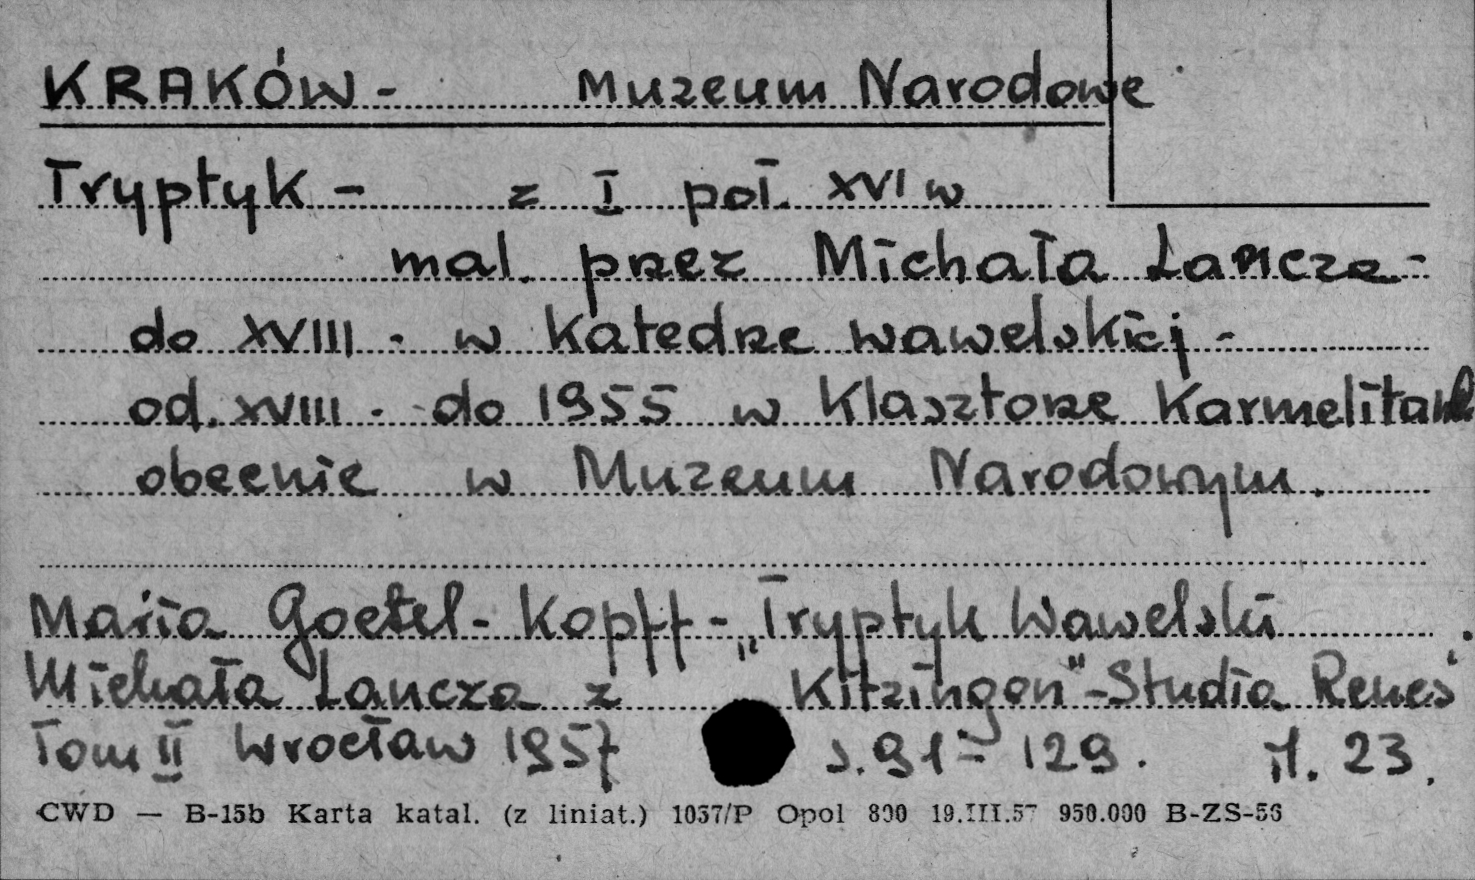 KRAKÓW - Muzeum Narodowe
Tryptyk - z I poł. XVI w
mal. przez Michała Lancza -
do XVIII - w Katedrze wawelskiej -
od. XVIII - do 1955 w Klasztorze Karmelitanek
obecnie w Muzeum Narodowym.
Maria Goetel-Kopff - „Tryptyk Wawelski
Michała Lancza z Kitzingen" - Studia Renes.
Tom II Wrocław 1957 s. 91 - 129. il. 23.
CWD — B-15b Karta katal. (z liniat.) 1057/P Opol 800 19.III.57 950.000 B-ZS-56